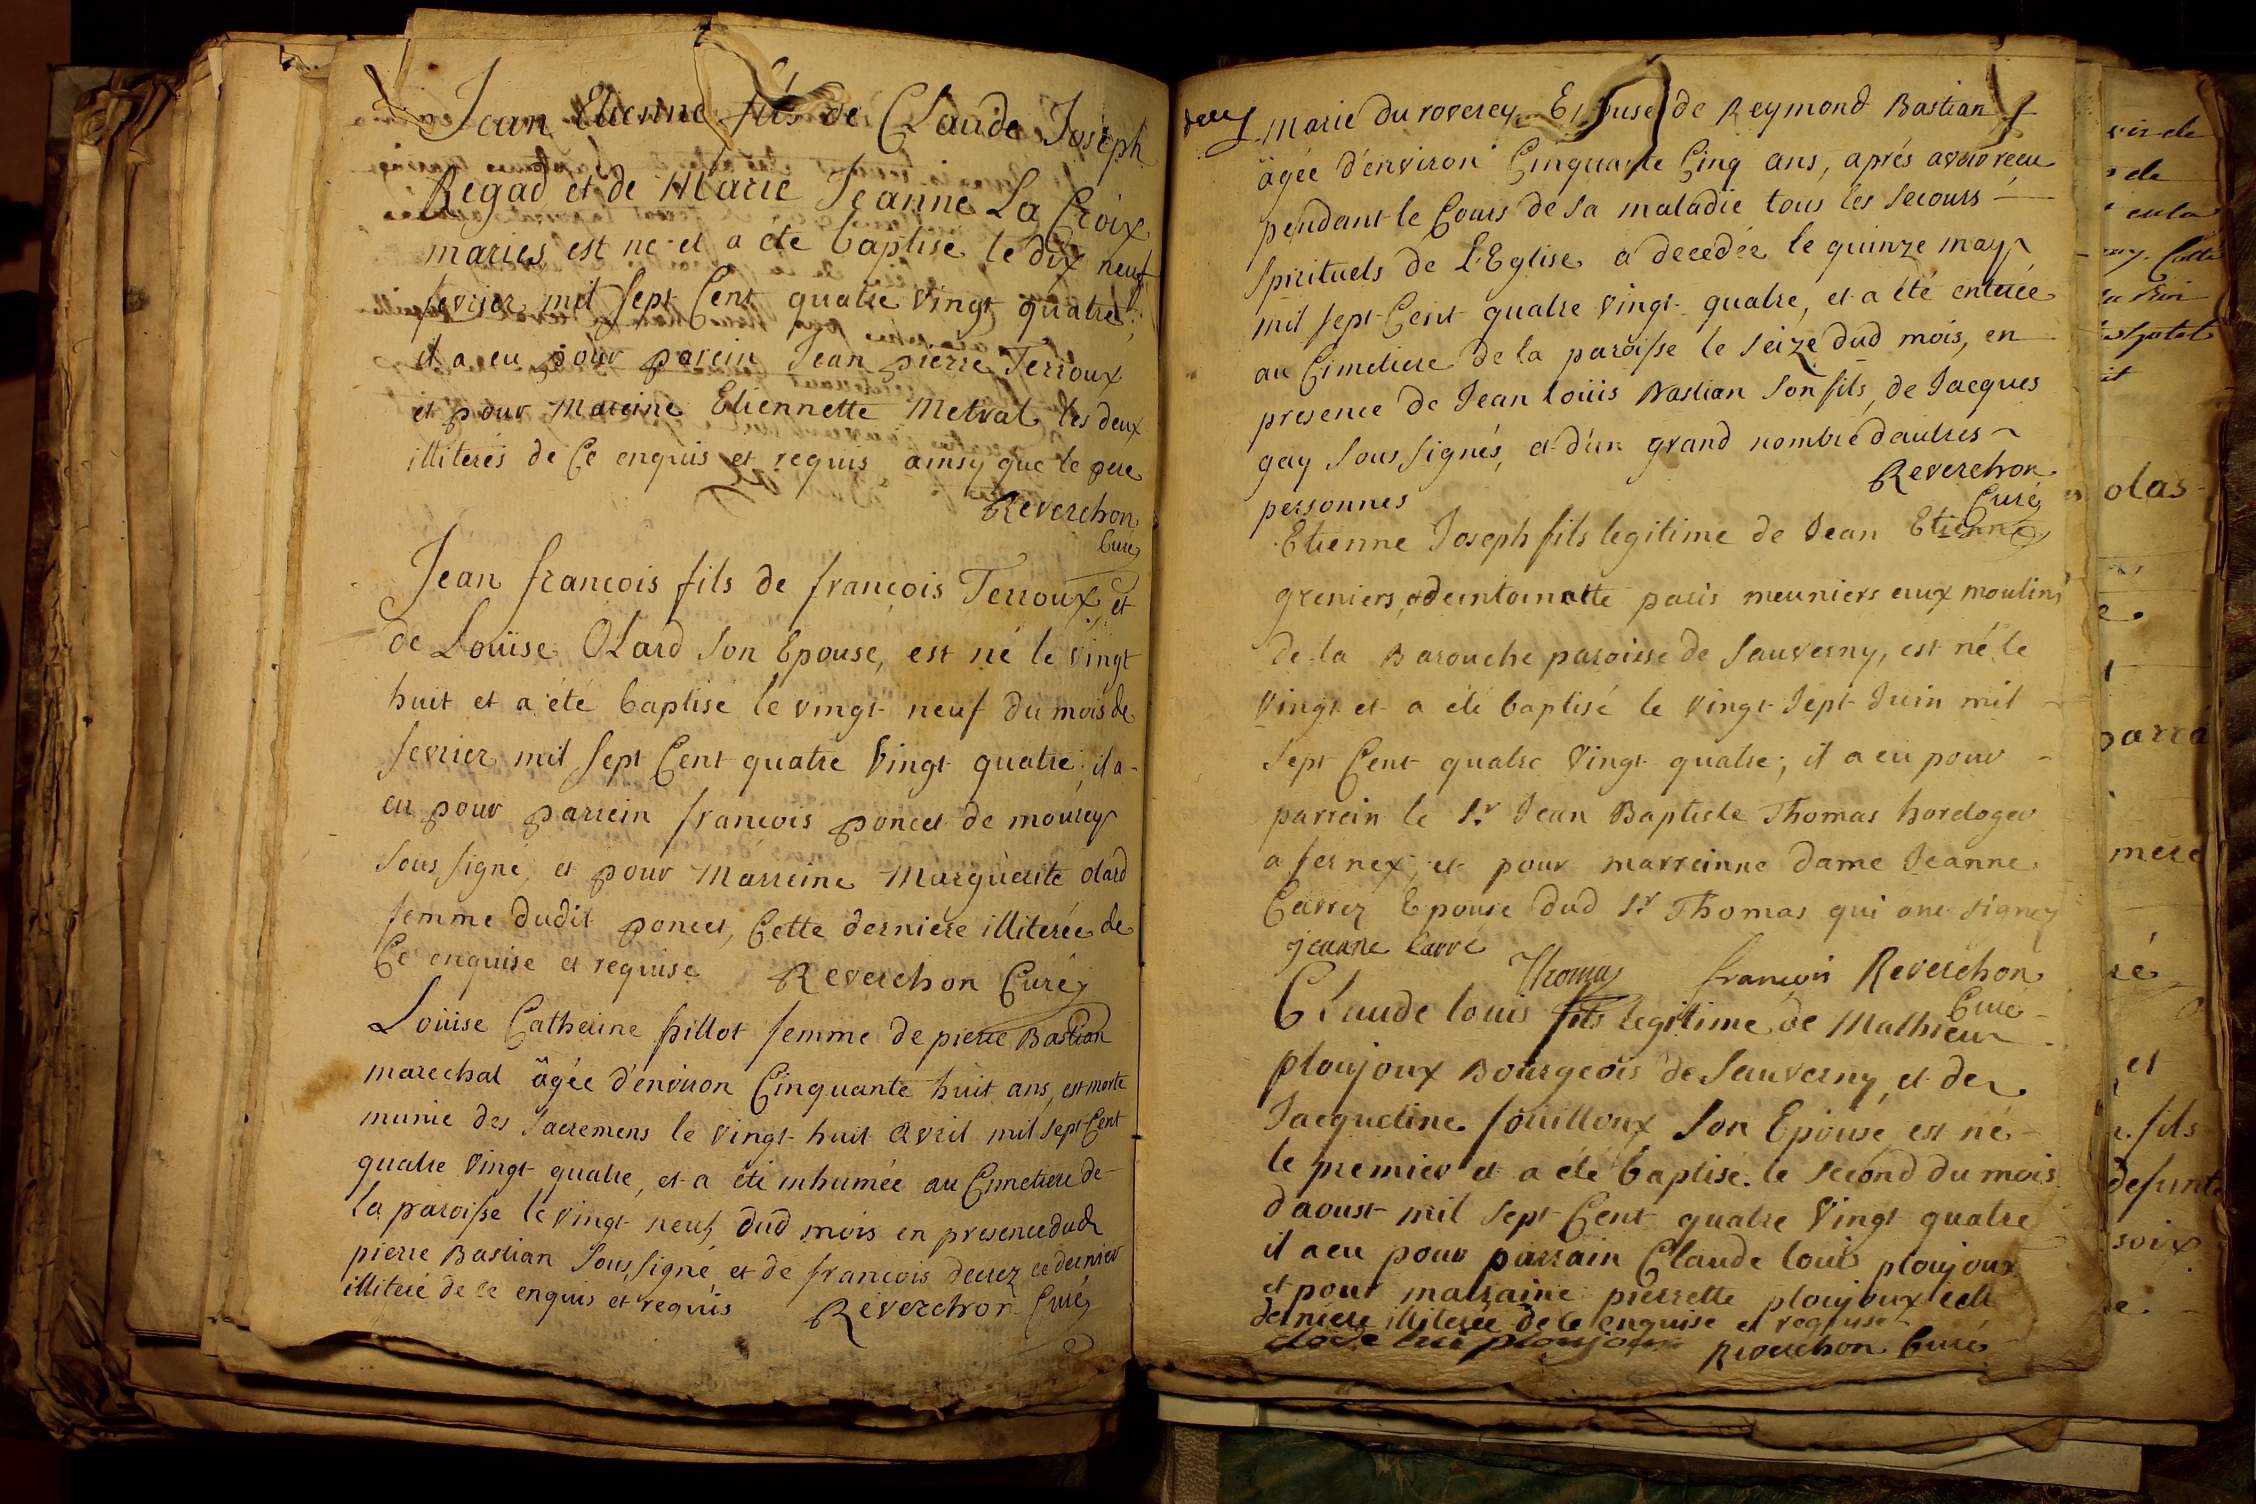 Jean Etienne fils de Claude Joseph
Regad et de Marie Jeanne La Croix
mariés est né et a été baptisé le dix neuf
fevrier mil sept Cent quatre vingt quatre
il a eu pour parein Jean pierre Terroux
et pour Mareine Etiennette Metral les deux
illiterés de Ce enquis et requis ainsy que le pere
Reverchon
Curé
Jean francois fils de françois Terroux et
de Loüise OLard son Epouse, est né le vingt
huit et a été baptisé le vingt neuf du mois de
fevrier mil sept Cent quatre vingt quatre; il a
eu pour parrein francois poncet de mourey
sous signé, et pour Marreine Marguerite olard
femme dudit poncet, Cette derniere illiterée de
Ce enquise et requise Reverchon Curé
Loüise Catherine pillot femme de pierre Bastian
marechal agée d'environ Cinquante huit ans, est morte
munie des Sacremens le vingt huit Avril mil sept Cent
quatre vingt quatre, et a été inhumée au Cimetiere de
la paroisse le vingt neuf dud mois en presence dud
pierre Bastian sous signé, et de francois decrez ce dernier
illiteré de ce enquis et requis Reverchon Curé
Marie du roverey Epouse de Reymond Bastian
agée d'environ Cinquante Cinq ans, aprés avoir reçu
pendant le Cours de sa maladie tous les secours
spirituels de L'Eglise a decedée le quinze may
mil sept Cent quatre vingt quatre, et a été enterée
au Cimetiere de la paroisse le seize dud mois, en
presence de Jean loüis Bastian son fils, de Jacques
gay sous signés, et d'un grand nombre dautres
personnes
Reverchon
Curé
Etienne Joseph fils legitime de Jean Etienne
greniers, et paris meuniers aux moulins
de la Barouche paroisse de Sauverny, est né le
vingt et a été baptisé le vingt sept Juin mil
sept Cent quatre vingt quatre; il a eu pour
parrein le Sr Jean Baptiste Thomas horeloger
a fernex, et pour marreinne dame Jeanne
Carrez Epouse dud Sr Thomas qui ont signez
jeanne Carré Thomas françois Reverchon
Curé
Claude louis fils legitime de Mathieu
ploujoux Bourgeois de Sauverny, et de
Jacqueline fouilloux son Epouse est né
le premier et a été baptisé le second du mois
daoust mil sept Cent quatre vingt quatre
il a eu pour parrain Claude louis ploujoux
et pour marraine pierrette ploujoux
derniere illiterée de Ce enquise et requise
ploujoux Reverchon Curé
olas
mere
fils
defunte